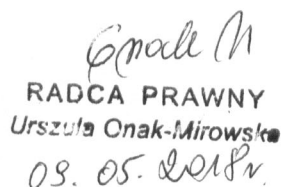 RADCA PRAWNY
Urszula Onak-Mirowska
09. 05. 2018r.